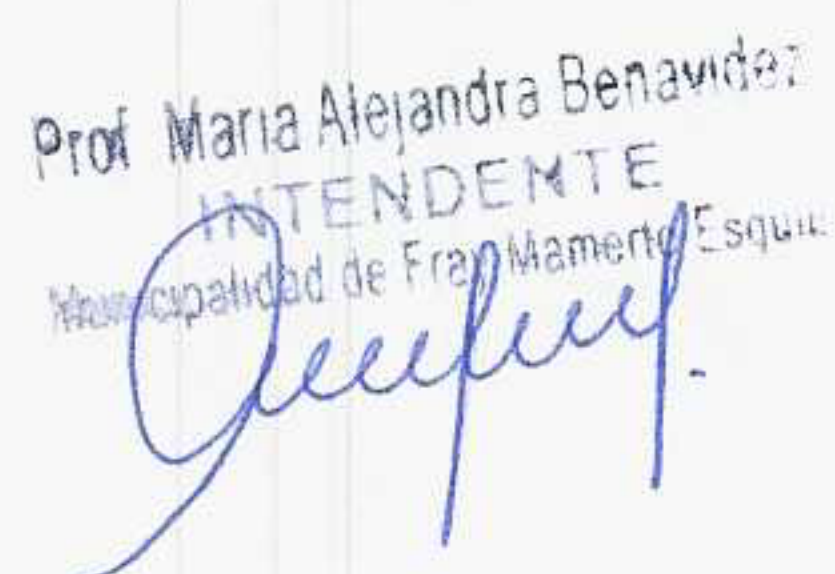 Prof Maria Alejandra Benavidez
INTENDENTE
Municipalidad de Fray Mamerto Esquiú